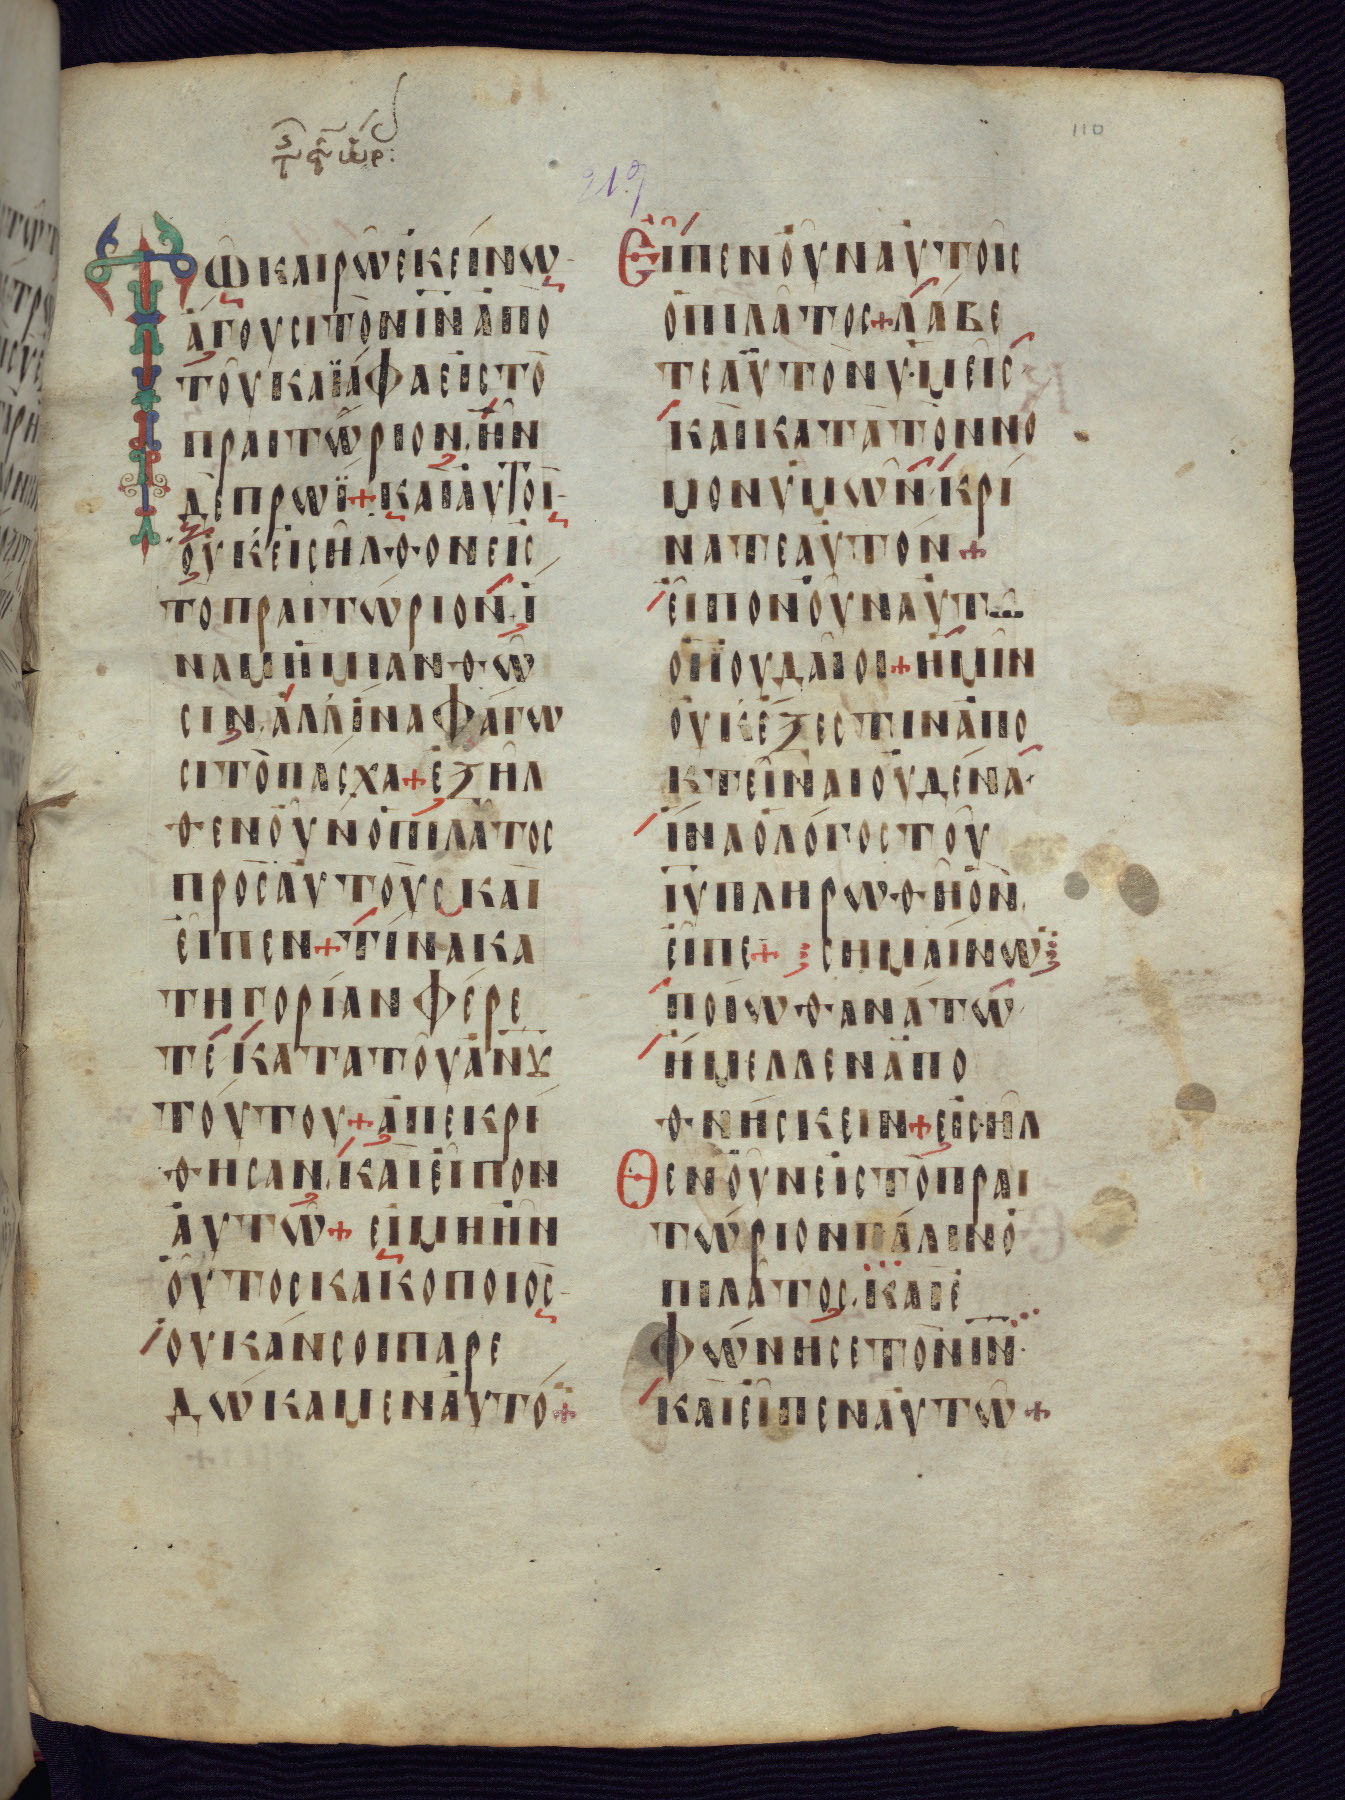 110
219
Τῶ καιρῶ ἐκείνω
ἄγουσι τὸν ἰν ἀπὸ
τοῦ καϊάφα εἰς τὸ
πραιτώριον. ἦν
δὲ πρωΐ + καὶ αὐτοὶ
οὐκ εἰσῆλθον εἰς
τὸ πραιτώριον. ἵ
να μὴ μιανθῶ
σιν. ἀλλ' ἵνα φάγω
σι τὸ πάσχα + ἐξῆλ
θεν οὖν ὁ πιλάτος
πρὸς αὐτοὺς καὶ
εἶπεν + τίνα κα
τηγορίαν φέρε
τε κατὰ τοῦ ἀνȣ
τούτου + ἀπεκρί
θησαν. καὶ εἶπον
αὐτῶ + εἰ μὴ ἦν
οὗτος κακοποιὸς
οὐκ ἄν σοι παρε
δώκαμεν αὐτό +
Εἶπεν οὖν αὐτοῖς
ὁ πιλάτος + λάβε
τε αὐτὸν ὑμεῖς
καὶ κατὰ τὸν νό
μον ὑμῶν κρί
νατε αὐτόν +
εἶπον οὖν αὐτῶ
οἱ ἰουδαῖοι + ἡμῖν
οὐκ ἔξεστιν ἀπο
κτεῖναι οὐδένα·
ἵνα ὁ λόγος τοῦ
ἰυ πληρωθῆ ὃν
εἶπε + σημαίνων
ποίω θανάτω
ἤμελλεν ἀπο
θνήσκειν + εἰσῆλ
Θεν οὖν εἰς τὸ πραι
τώριον πάλιν ὁ
πιλάτος. καὶ ἐ
φώνησε τὸν ἰν·
καὶ εἶπεν αὐτῶ +